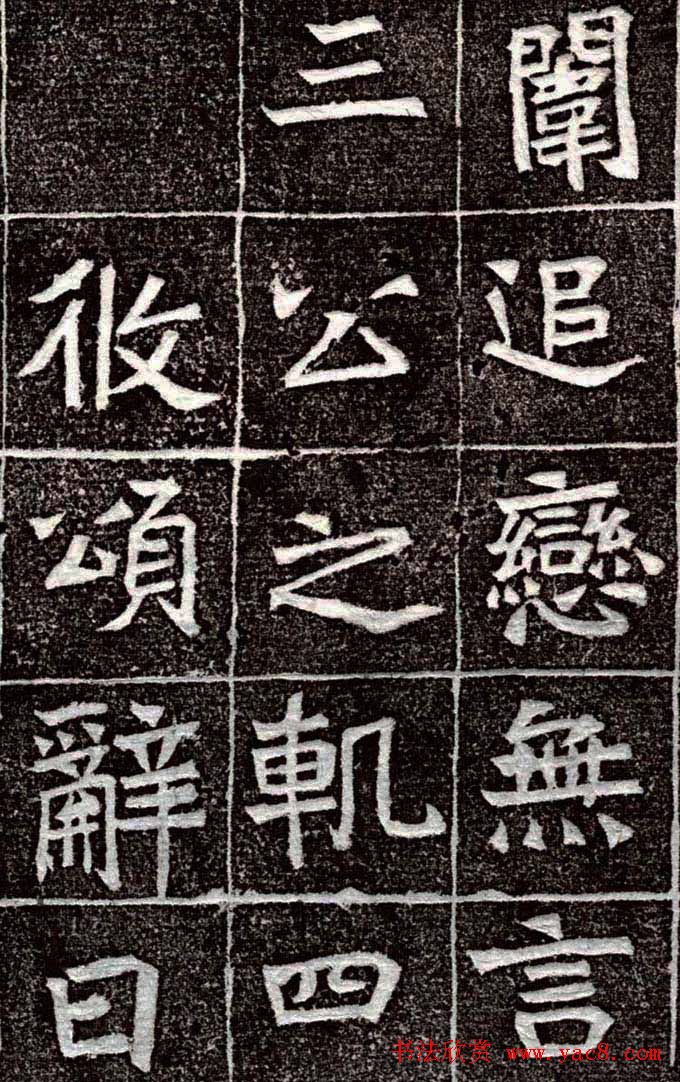 闈追戀無言
三公之軏四
攸頌辭曰
书法欣赏 www.yac8.com